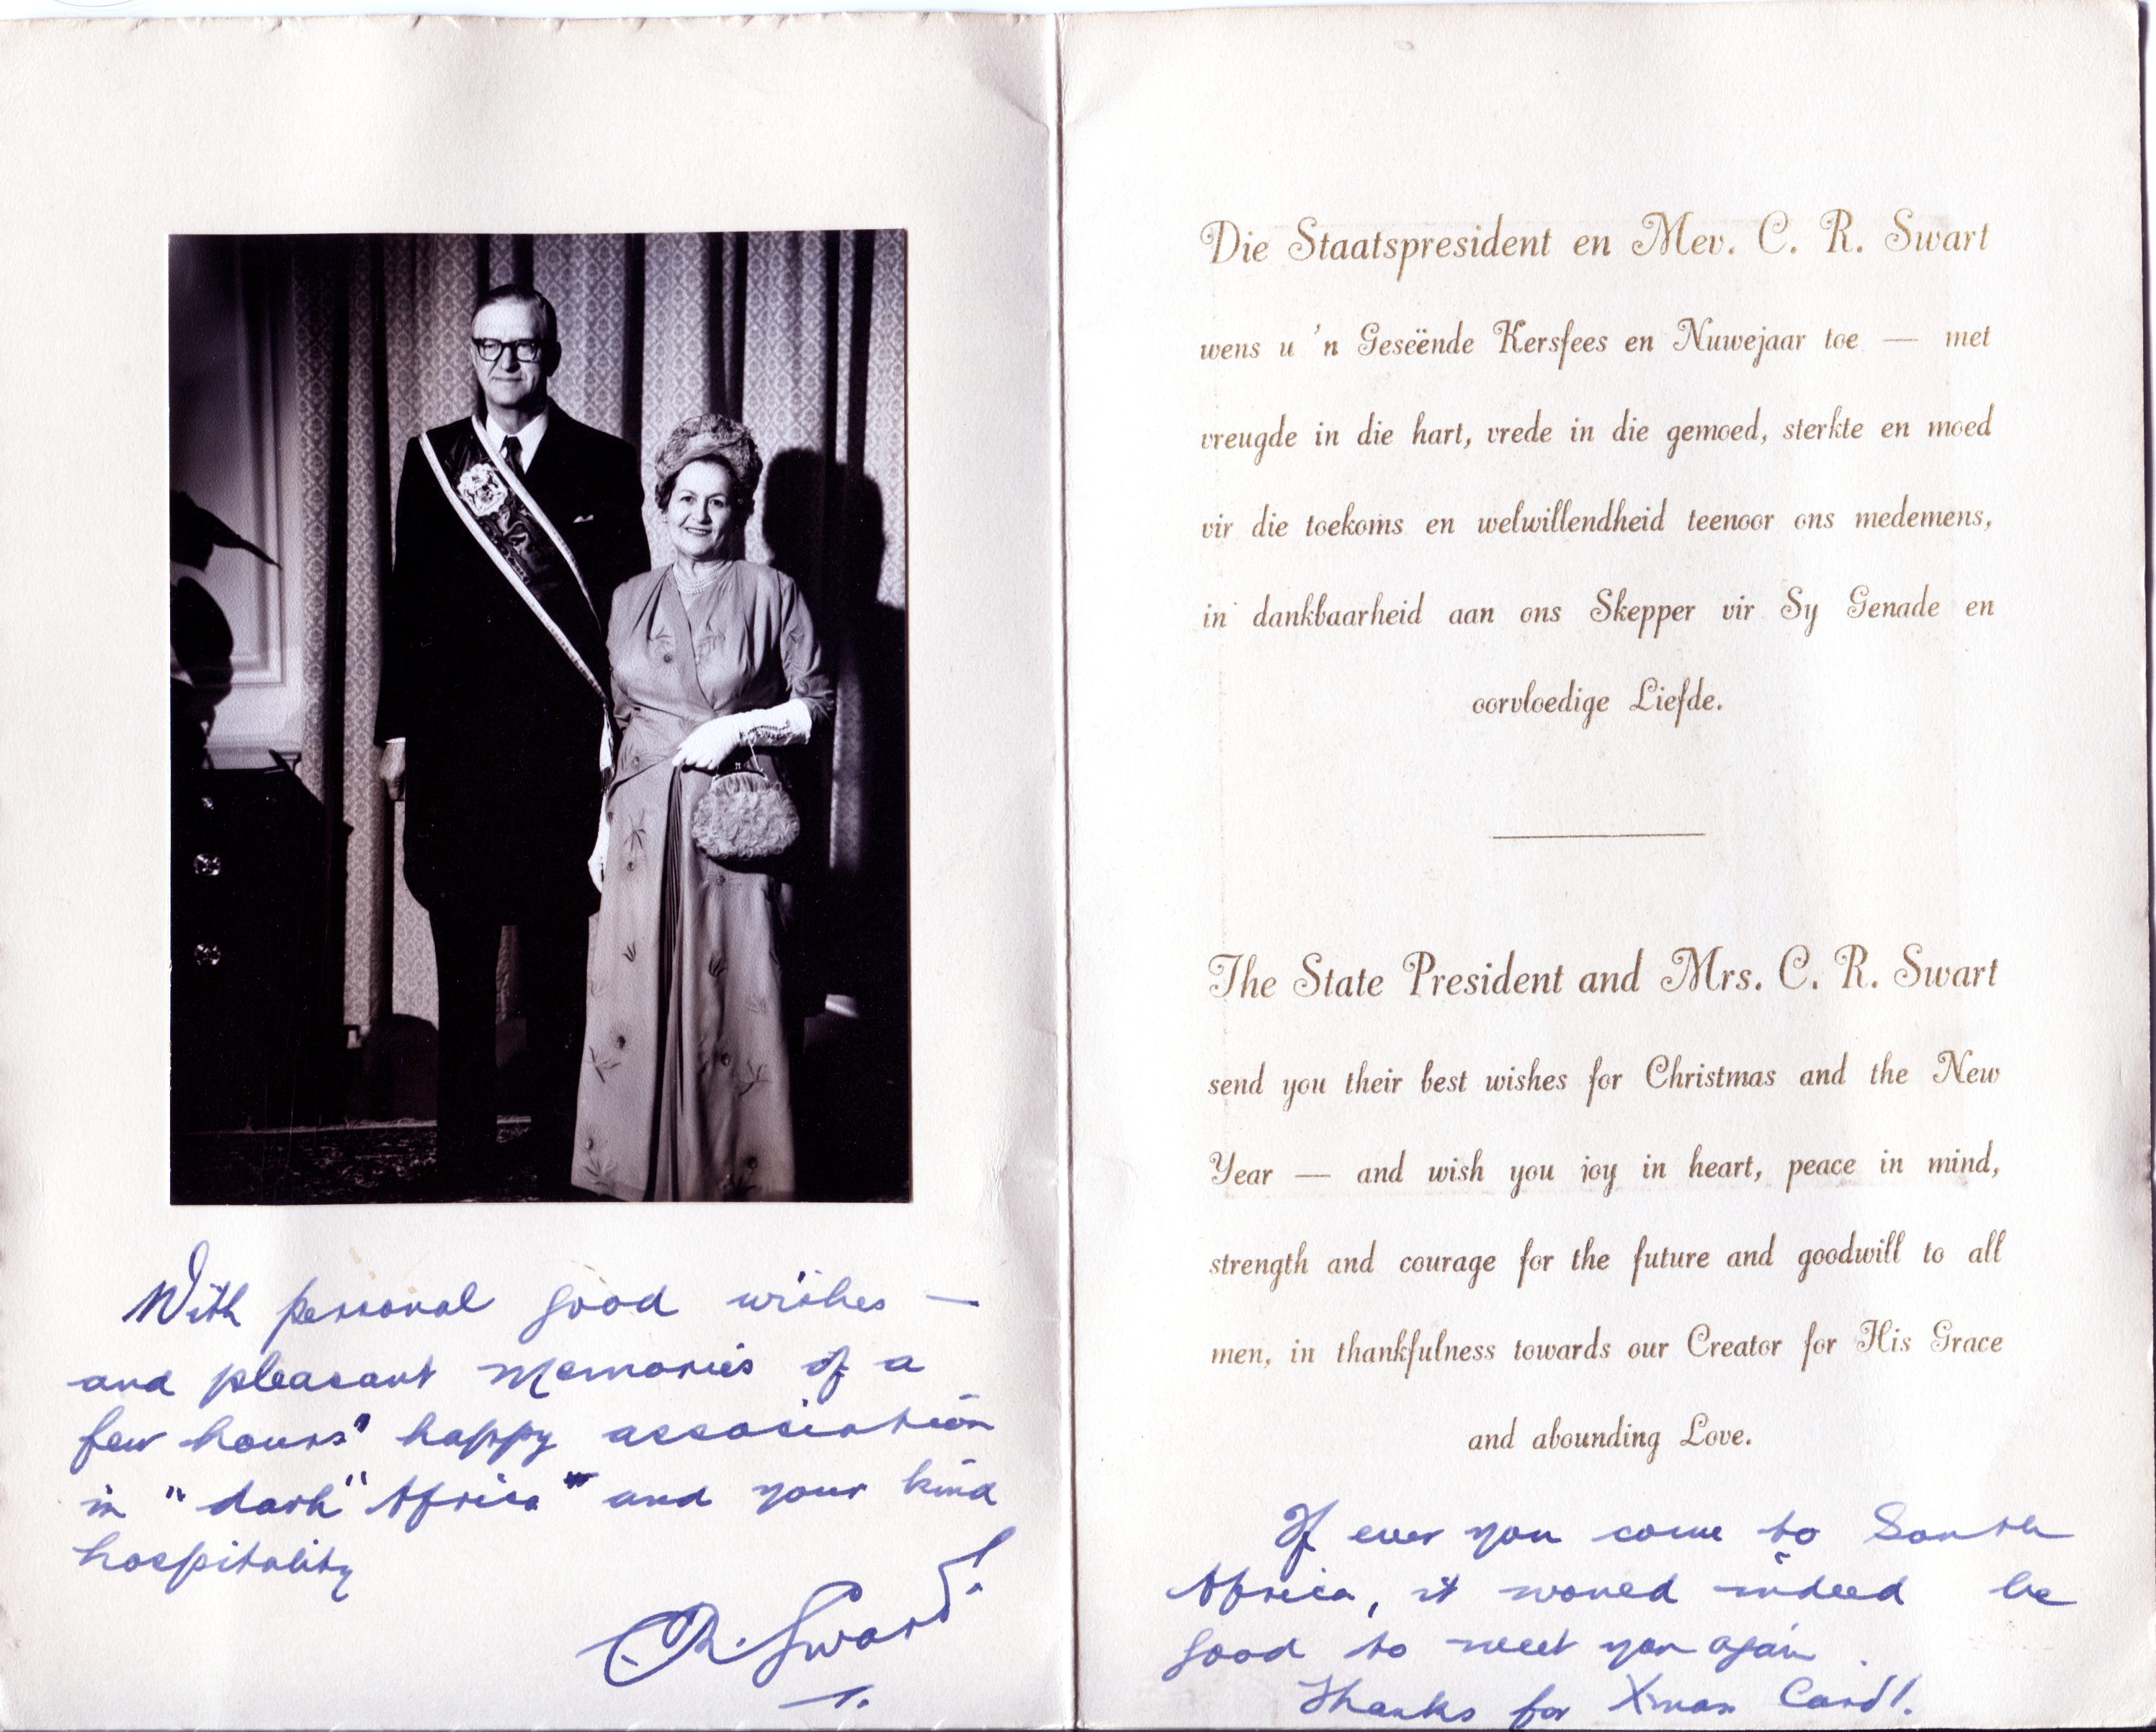 With personal good wishes —
and pleasant memories of a
few hours' happy association
in "dark" Africa" and your kind
hospitality
CR. Swart
Die Staatspresident en Mev. C. R. Swart
wens u 'n Geseënde Kersfees en Nuwejaar toe — met
vreugde in die hart, vrede in die gemoed, sterkte en moed
vir die toekoms en welwillendheid teenoor ons medemens,
in dankbaarheid aan ons Skepper vir Sy Genade en
oorvloedige Liefde.
The State President and Mrs. C. R. Swart
send you their best wishes for Christmas and the New
Year — and wish you joy in heart, peace in mind,
strength and courage for the future and goodwill to all
men, in thankfulness towards our Creator for His Grace
and abounding Love.
If ever you come to South
Africa, it would indeed be
good to meet you again.
Thanks for Xmas Card!